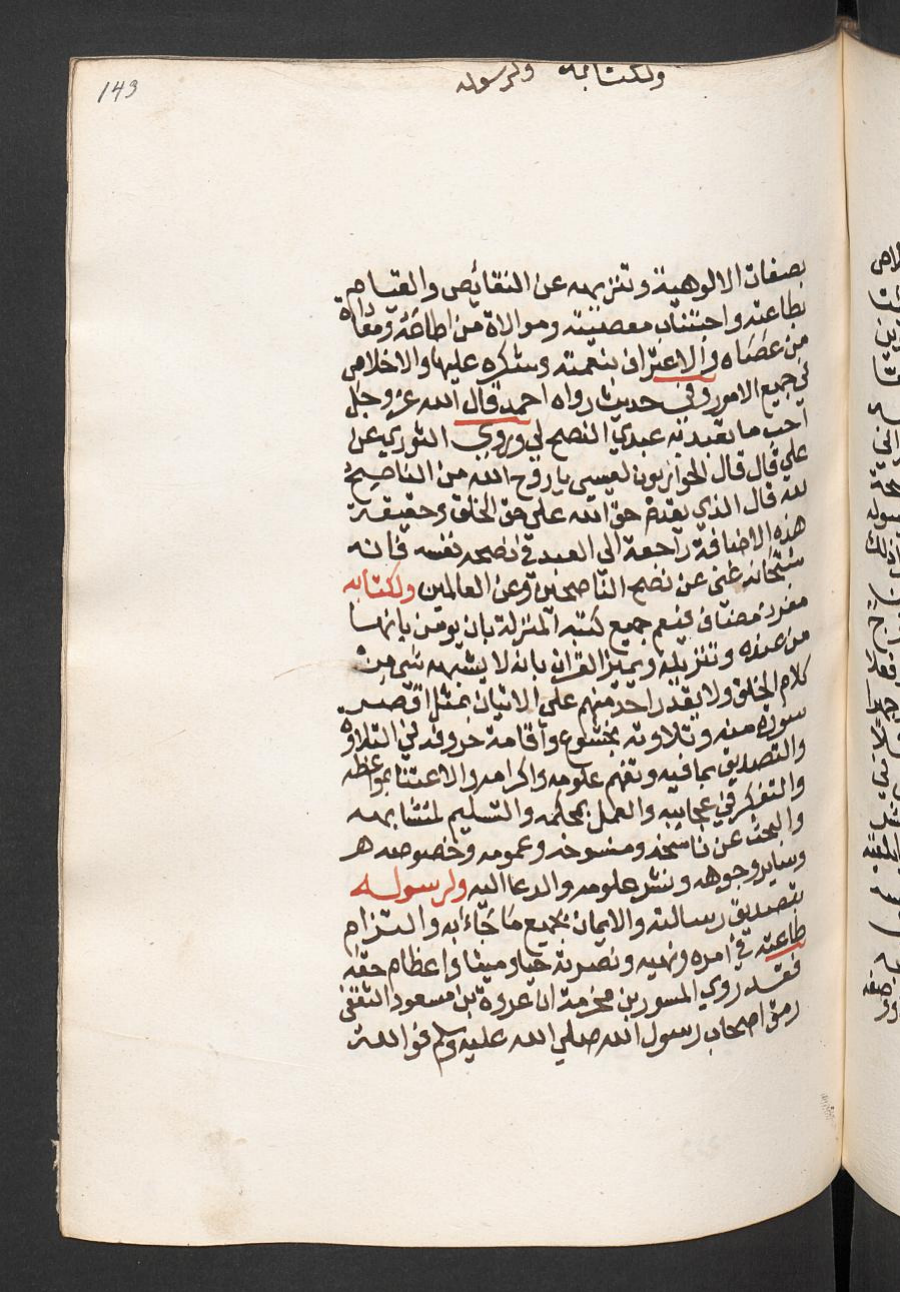 143
ولكتابه ولرسوله
بصفات الالوهية وتنزيهه عن النقائص والقيام
بطاعته واجتناب معصيته وموالاة من اطاعه ومعاداة
من عصاه والاعتراف بنعمته وشكره عليها والاخلاص
في جميع الامور وفى حديث رواه احمد قال الله عز وجل
احب ما تعبد به عبدي النصح لي وروي الثوري عن
علي قال قال الحواريون لعيسى يا روح الله من الناصح
لله قال الذي يقدم حق الله على حق الخلق وحقيقة
هذه الاضافة راجعة الى العبد في نصحه نفسه فانه
سبحانه غنى عن نصح الناصحين وعن العالمين ولكتابه
مفرد مضاف فيعم جميع كتبه المنزلة بان يومن بانها
من عنده وتنزيله ويميز القران بانه لا يشبهه شى من
كلام الخلق ولا يقدر احد منهم على الاتيان بمثل اقصر
سورة منه وتلاوته بخشوع واقامة حروفه في التلاوة
والتصديق بما فيه وتفهم علومه واكرامه والاعتنا بمواعظه
والتفكر في عجايبه والعمل بمحكمه والتسليم لمتشابهه
والبحث عن ناسخه ومنسوخه وعمومه وخصوصه
وساير وجوهه ونشر علومه والدعا اليه ولرسوله
بتصديق رسالته والايمان بجميع ما جاء به والتزام
طاعته في امره ونهيه ونصرته حيا وميتا واعظام حقه
فقد روي المسور بن مخرمة ان عروة بن مسعود الثقفى
رمق اصحاب رسول الله صلي الله عليه وسلم فوالله